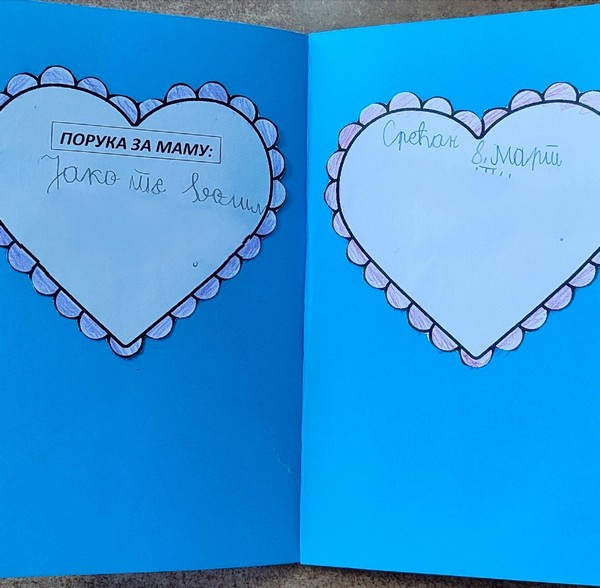 ПОРУКА ЗА МАМУ:
Јако те волим
Срећан 8. Март